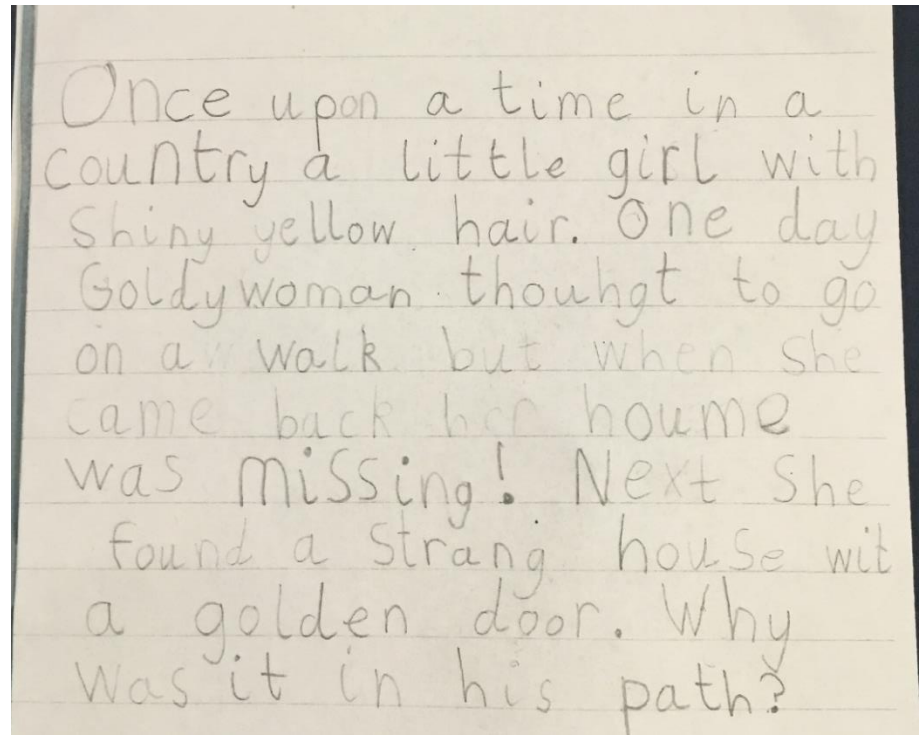 Once upon a time in a
country a little girl with
shiny yellow hair. One day
Goldywoman thouhgt to go
on a walk but when she
came back her houme
was missing! Next she
found a strang house wit
a golden door. Why
was it in his path?